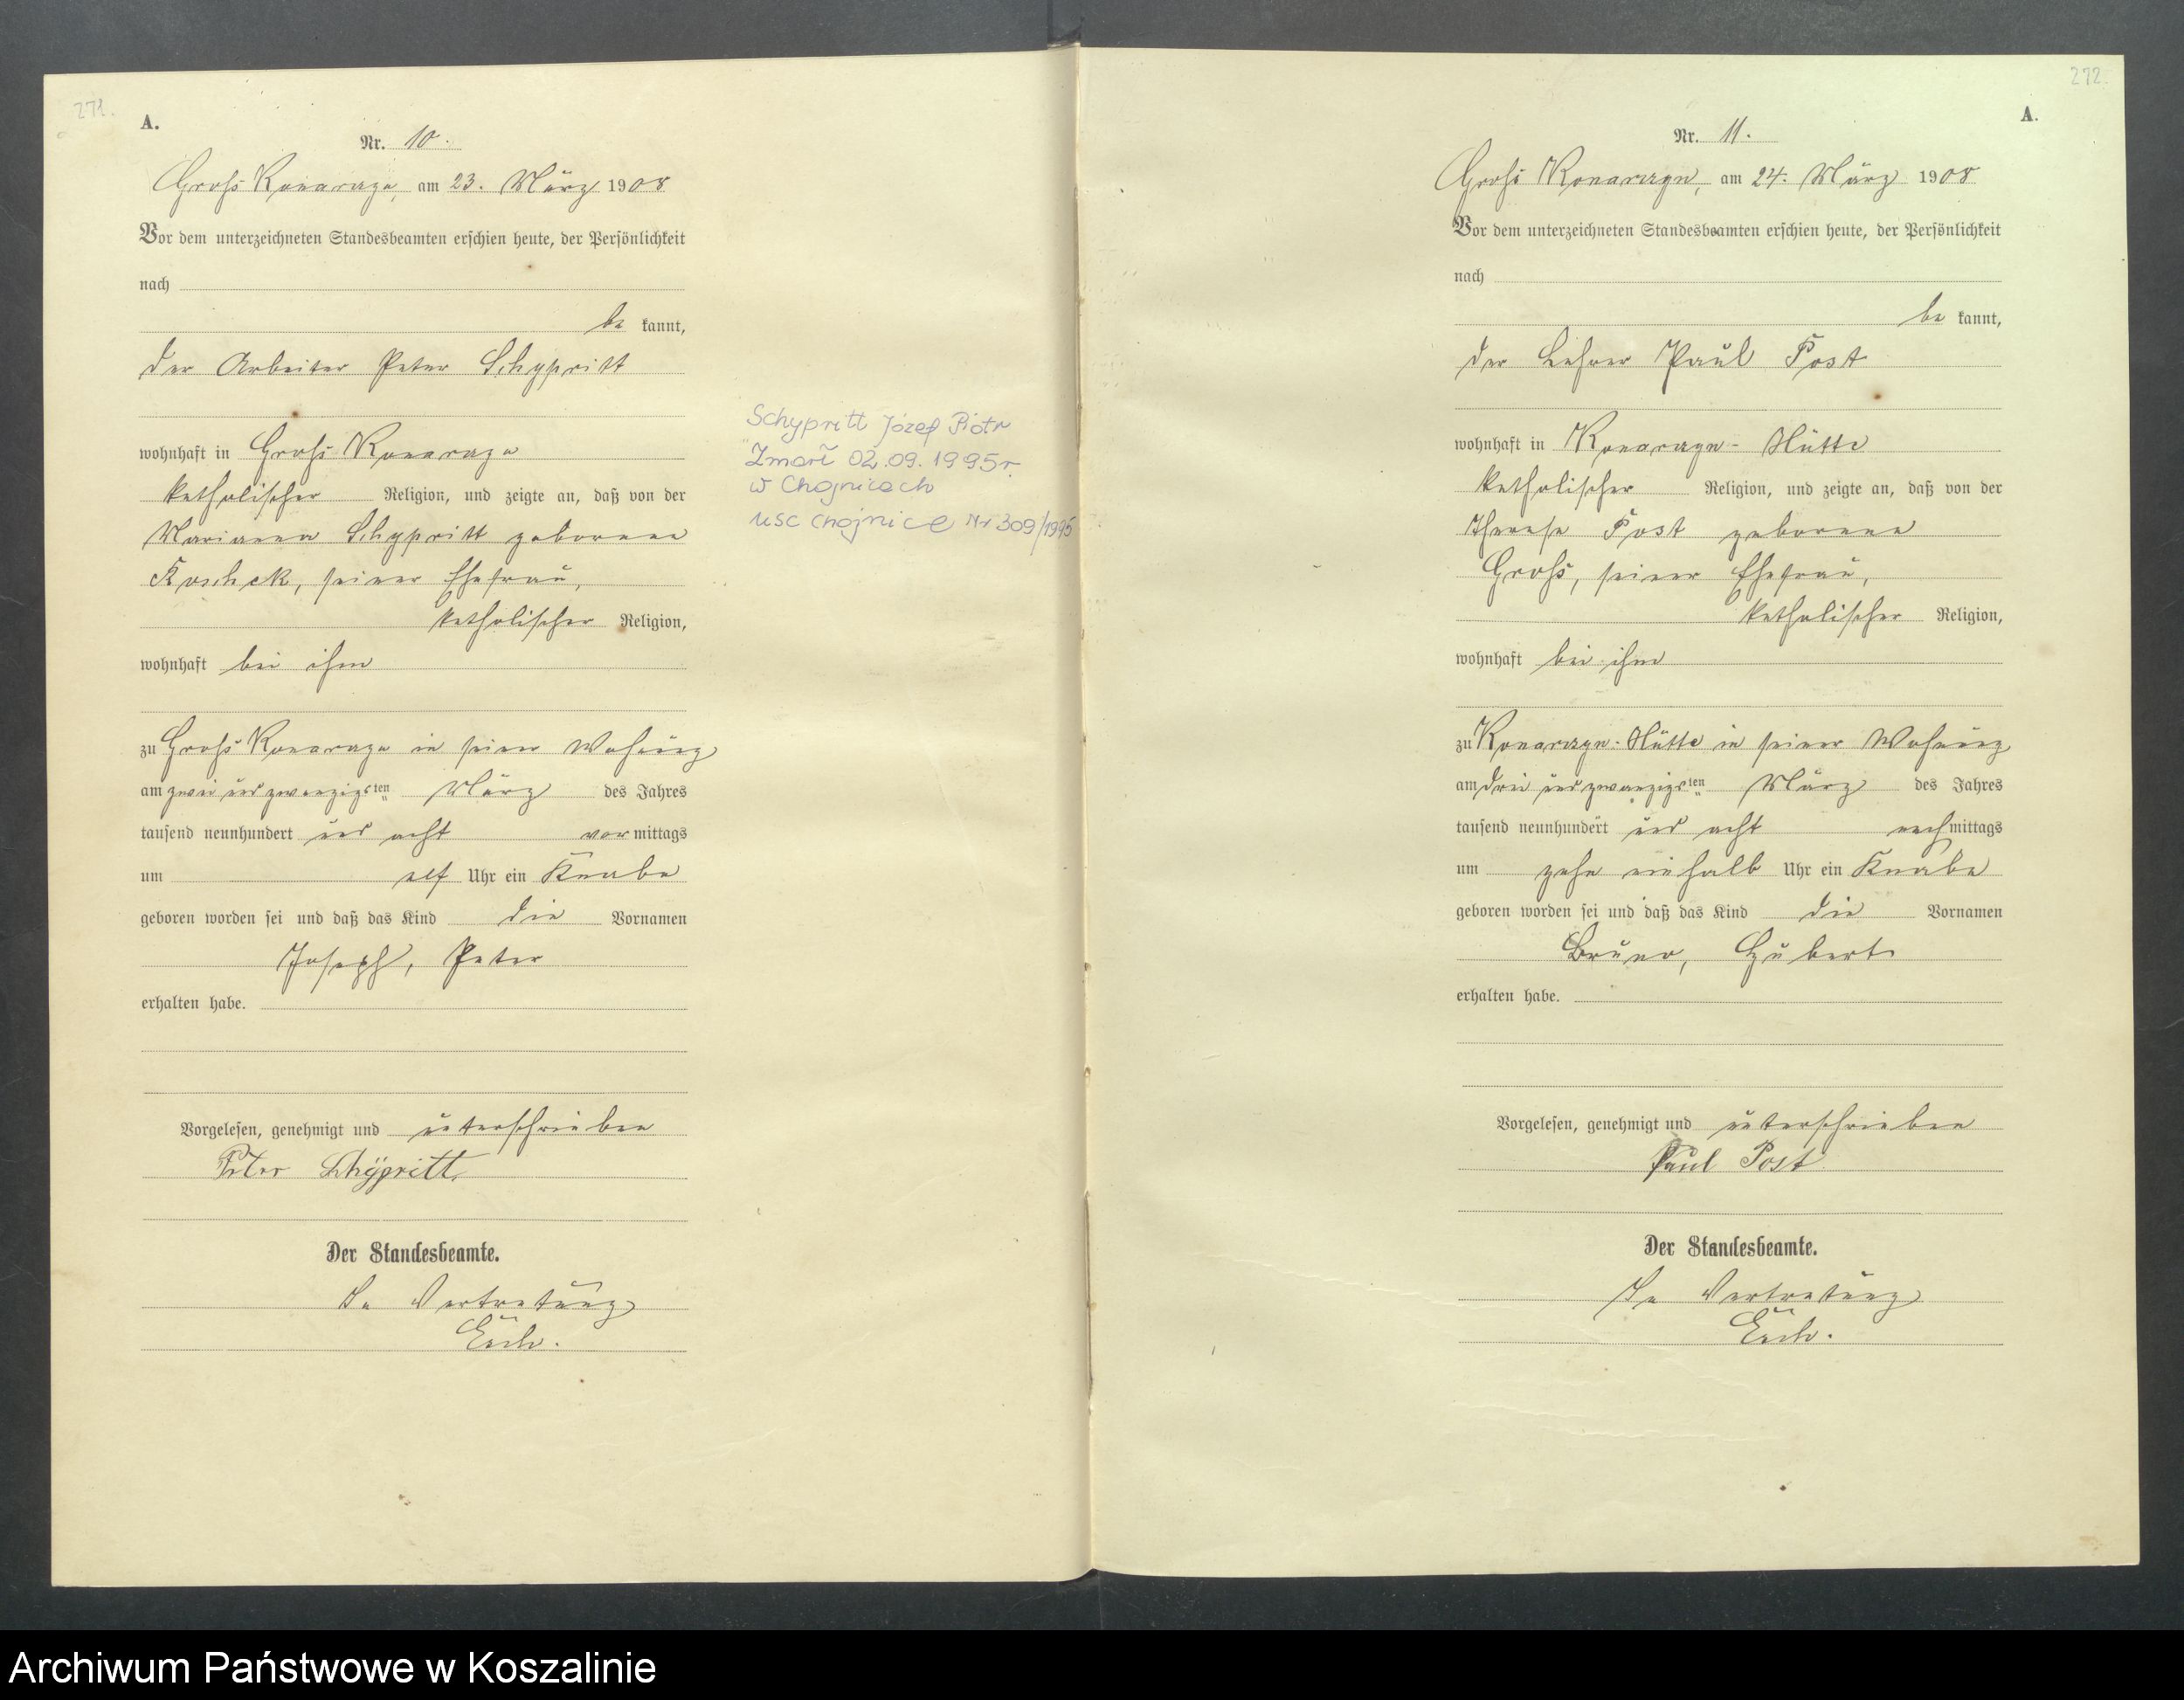 271.
A.
Nr. 10.
Groß Konarzyn, am 23. März 1908
Vor dem unterzeichneten Standesbeamten erschien heute, der Persönlichkeit
nach
be kannt,
der Arbeiter Peter Schypritt
wohnhaft in Groß Konarzyn
katholischer Religion, und zeigte an, daß von der
Marianna Schypritt geborene
Koschek, seiner Ehefrau,
katholischer Religion,
wohnhaft bei ihm
zu Groß Konarzyn in seiner Wohnung
am zwei und zwanzigsten März des Jahres
tausend neunhundert und acht vormittags
um elf Uhr ein Knabe
geboren worden sei und daß das Kind die Vornamen
Joseph, Peter
erhalten habe.
Vorgelesen, genehmigt und unterschrieben
Peter Schÿpritt
Der Standesbeamte.
In Vertretung
Schypritt Józef Piotr
Zmarł 02.09.1995r.
w Chojnicach
USC Chojnice Nr 309/1995
272.
A.
Nr. 11.
Groß Konarzyn, am 24. März 1908
Vor dem unterzeichneten Standesbeamten erschien heute, der Persönlichkeit
nach
be kannt,
der Lehrer Paul Post
wohnhaft in Konarzyn-Hütte
katholischer Religion, und zeigte an, daß von der
Therese Post geborene
Groß, seiner Ehefrau,
katholischer Religion,
wohnhaft bei ihm
zu Konarzyn-Hütte in seiner Wohnung
am drei und zwanzigsten März des Jahres
tausend neunhundert und acht nachmittags
um zehn einhalb Uhr ein Knabe
geboren worden sei und daß das Kind die Vornamen
Bruno, Hubert
erhalten habe.
Vorgelesen, genehmigt und unterschrieben
Paul Post
Der Standesbeamte.
In Vertretung
Archiwum Państwowe w Koszalinie